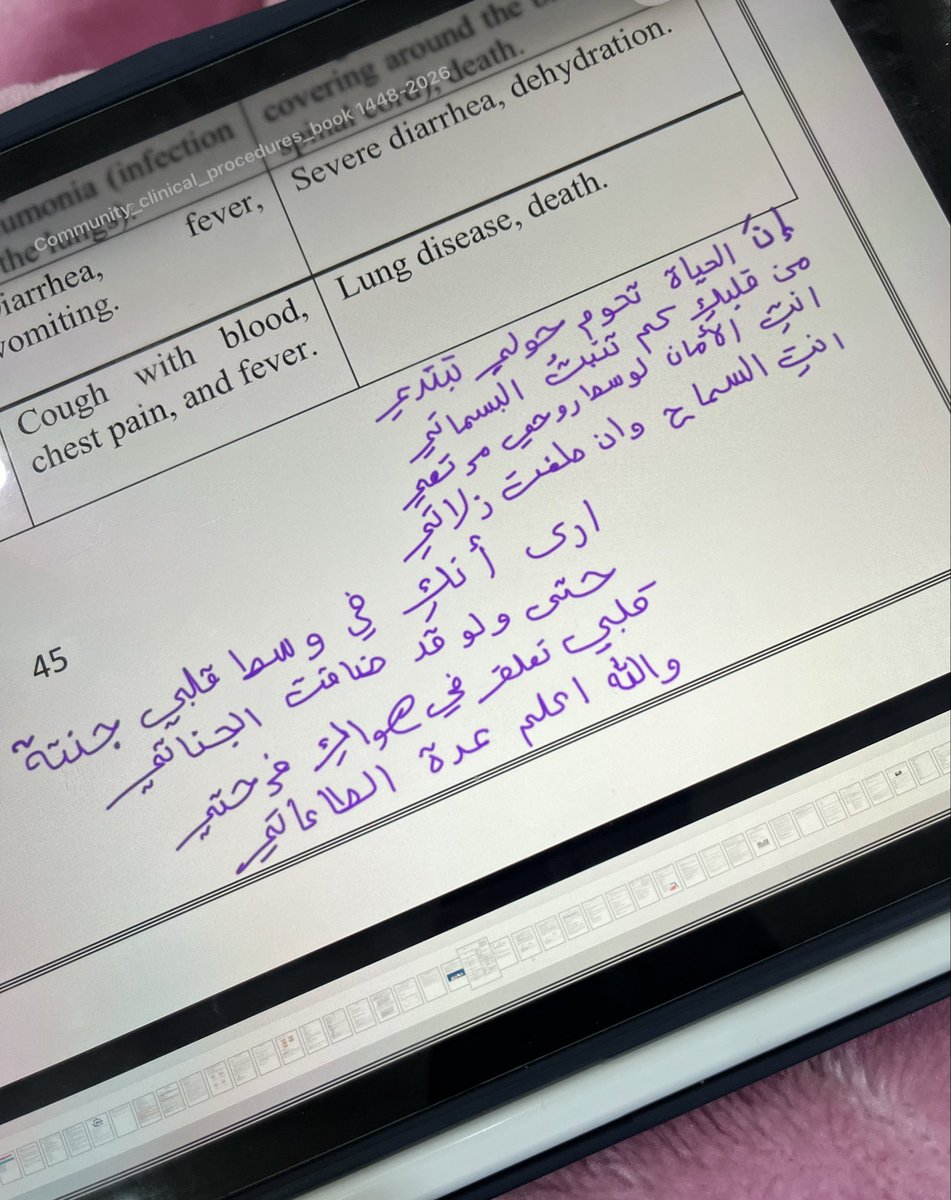 covering around the
spinal cord), death.
Community_clinical_procedures_book 1448-2026
umonia (infection
the lungs).
Severe diarrhea, dehydration.
iarrhea, fever,
vomiting.
Lung disease, death.
Cough with blood,
chest pain, and fever.
إنّ الحياة تحوم حولي تبتدي
من قلبكِ كم تنبتُ البسماتي
انتِ الأمان لوسط روحي مرتعي
انتِ السماح وان طغت زلاتي
45
ارى أنكِ في وسط قلبي جنتة
حتى ولو قد ضاقت الجناتي
قلبي تعلق في هواكِ فرحتي
والله اعلم عدة الطاعاتي